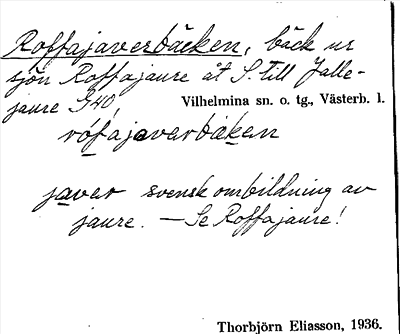 Roffajaverbäcken, bäck ur
sjön Roffajaure åt S. till Jalle-
jaure G40,
Vilhelmina sn. o. tg., Västerb. l.
rófajaverbäken
javer svensk ombildning av
jaure. — Se Roffajaure!
Thorbjörn Eliasson, 1936.